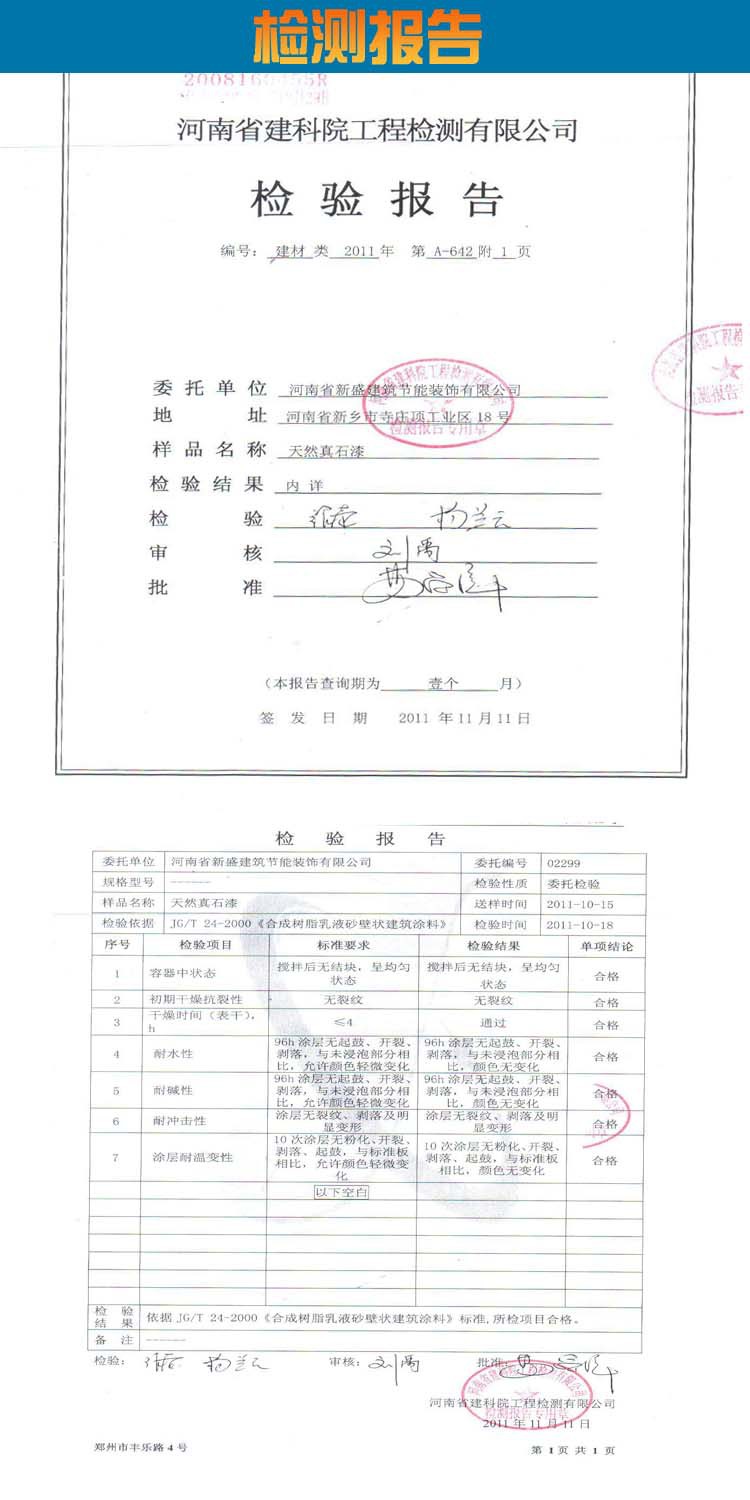 检测报告
河南省建科院工程检测有限公司
检验报告
编号： 建材 类 2011 年 第 A-642 附 1 页
委托单位 河南省新盛建筑节能装饰有限公司
地址 河南省新乡市寺庄顶工业区 18 号
样品名称 天然真石漆
检验结果 内 详
检验
审核 刘禹
批准
（本报告查询期为 壹个 月）
签发日期 2011 年 11 月 11 日
检验报告
委托单位 河南省新盛建筑节能装饰有限公司 委托编号 02299
规格型号 ------ 检验性质 委托检验
样品名称 天然真石漆 送样时间 2011-10-15
检验依据 JG/T 24-2000《合成树脂乳液砂壁状建筑涂料》 检验时间 2011-10-18
序号 检验项目 标准要求 检验结果 单项结论
1 容器中状态 搅拌后无结块，呈均匀状态 搅拌后无结块，呈均匀状态 合格
2 初期干燥抗裂性 无裂纹 无裂纹 合格
3 干燥时间（表干），h ≤4 通过 合格
4 耐水性 96h 涂层无起鼓、开裂、剥落，与未浸泡部分相比，允许颜色轻微变化 96h 涂层无起鼓、开裂、剥落，与未浸泡部分相比，颜色无变化 合格
5 耐碱性 96h 涂层无起鼓、开裂、剥落，与未浸泡部分相比，允许颜色轻微变化 96h 涂层无起鼓、开裂、剥落，与未浸泡部分相比，颜色无变化 合格
6 耐冲击性 涂层无裂纹、剥落及明显变形 涂层无裂纹、剥落及明显变形 合格
7 涂层耐温变性 10 次涂层无粉化、开裂、剥落、起鼓，与标准板相比，允许颜色轻微变化 10 次涂层无粉化、开裂、剥落、起鼓，与标准板相比，颜色无变化 合格
以下空白
检验结果 依据 JG/T 24-2000《合成树脂乳液砂壁状建筑涂料》标准，所检项目合格。
备注 ------
检验： 杨兰云 审核：刘禹 批准：
河南省建科院工程检测有限公司
2011 年 11 月 11 日
郑州市丰乐路 4 号 第 1 页 共 1 页